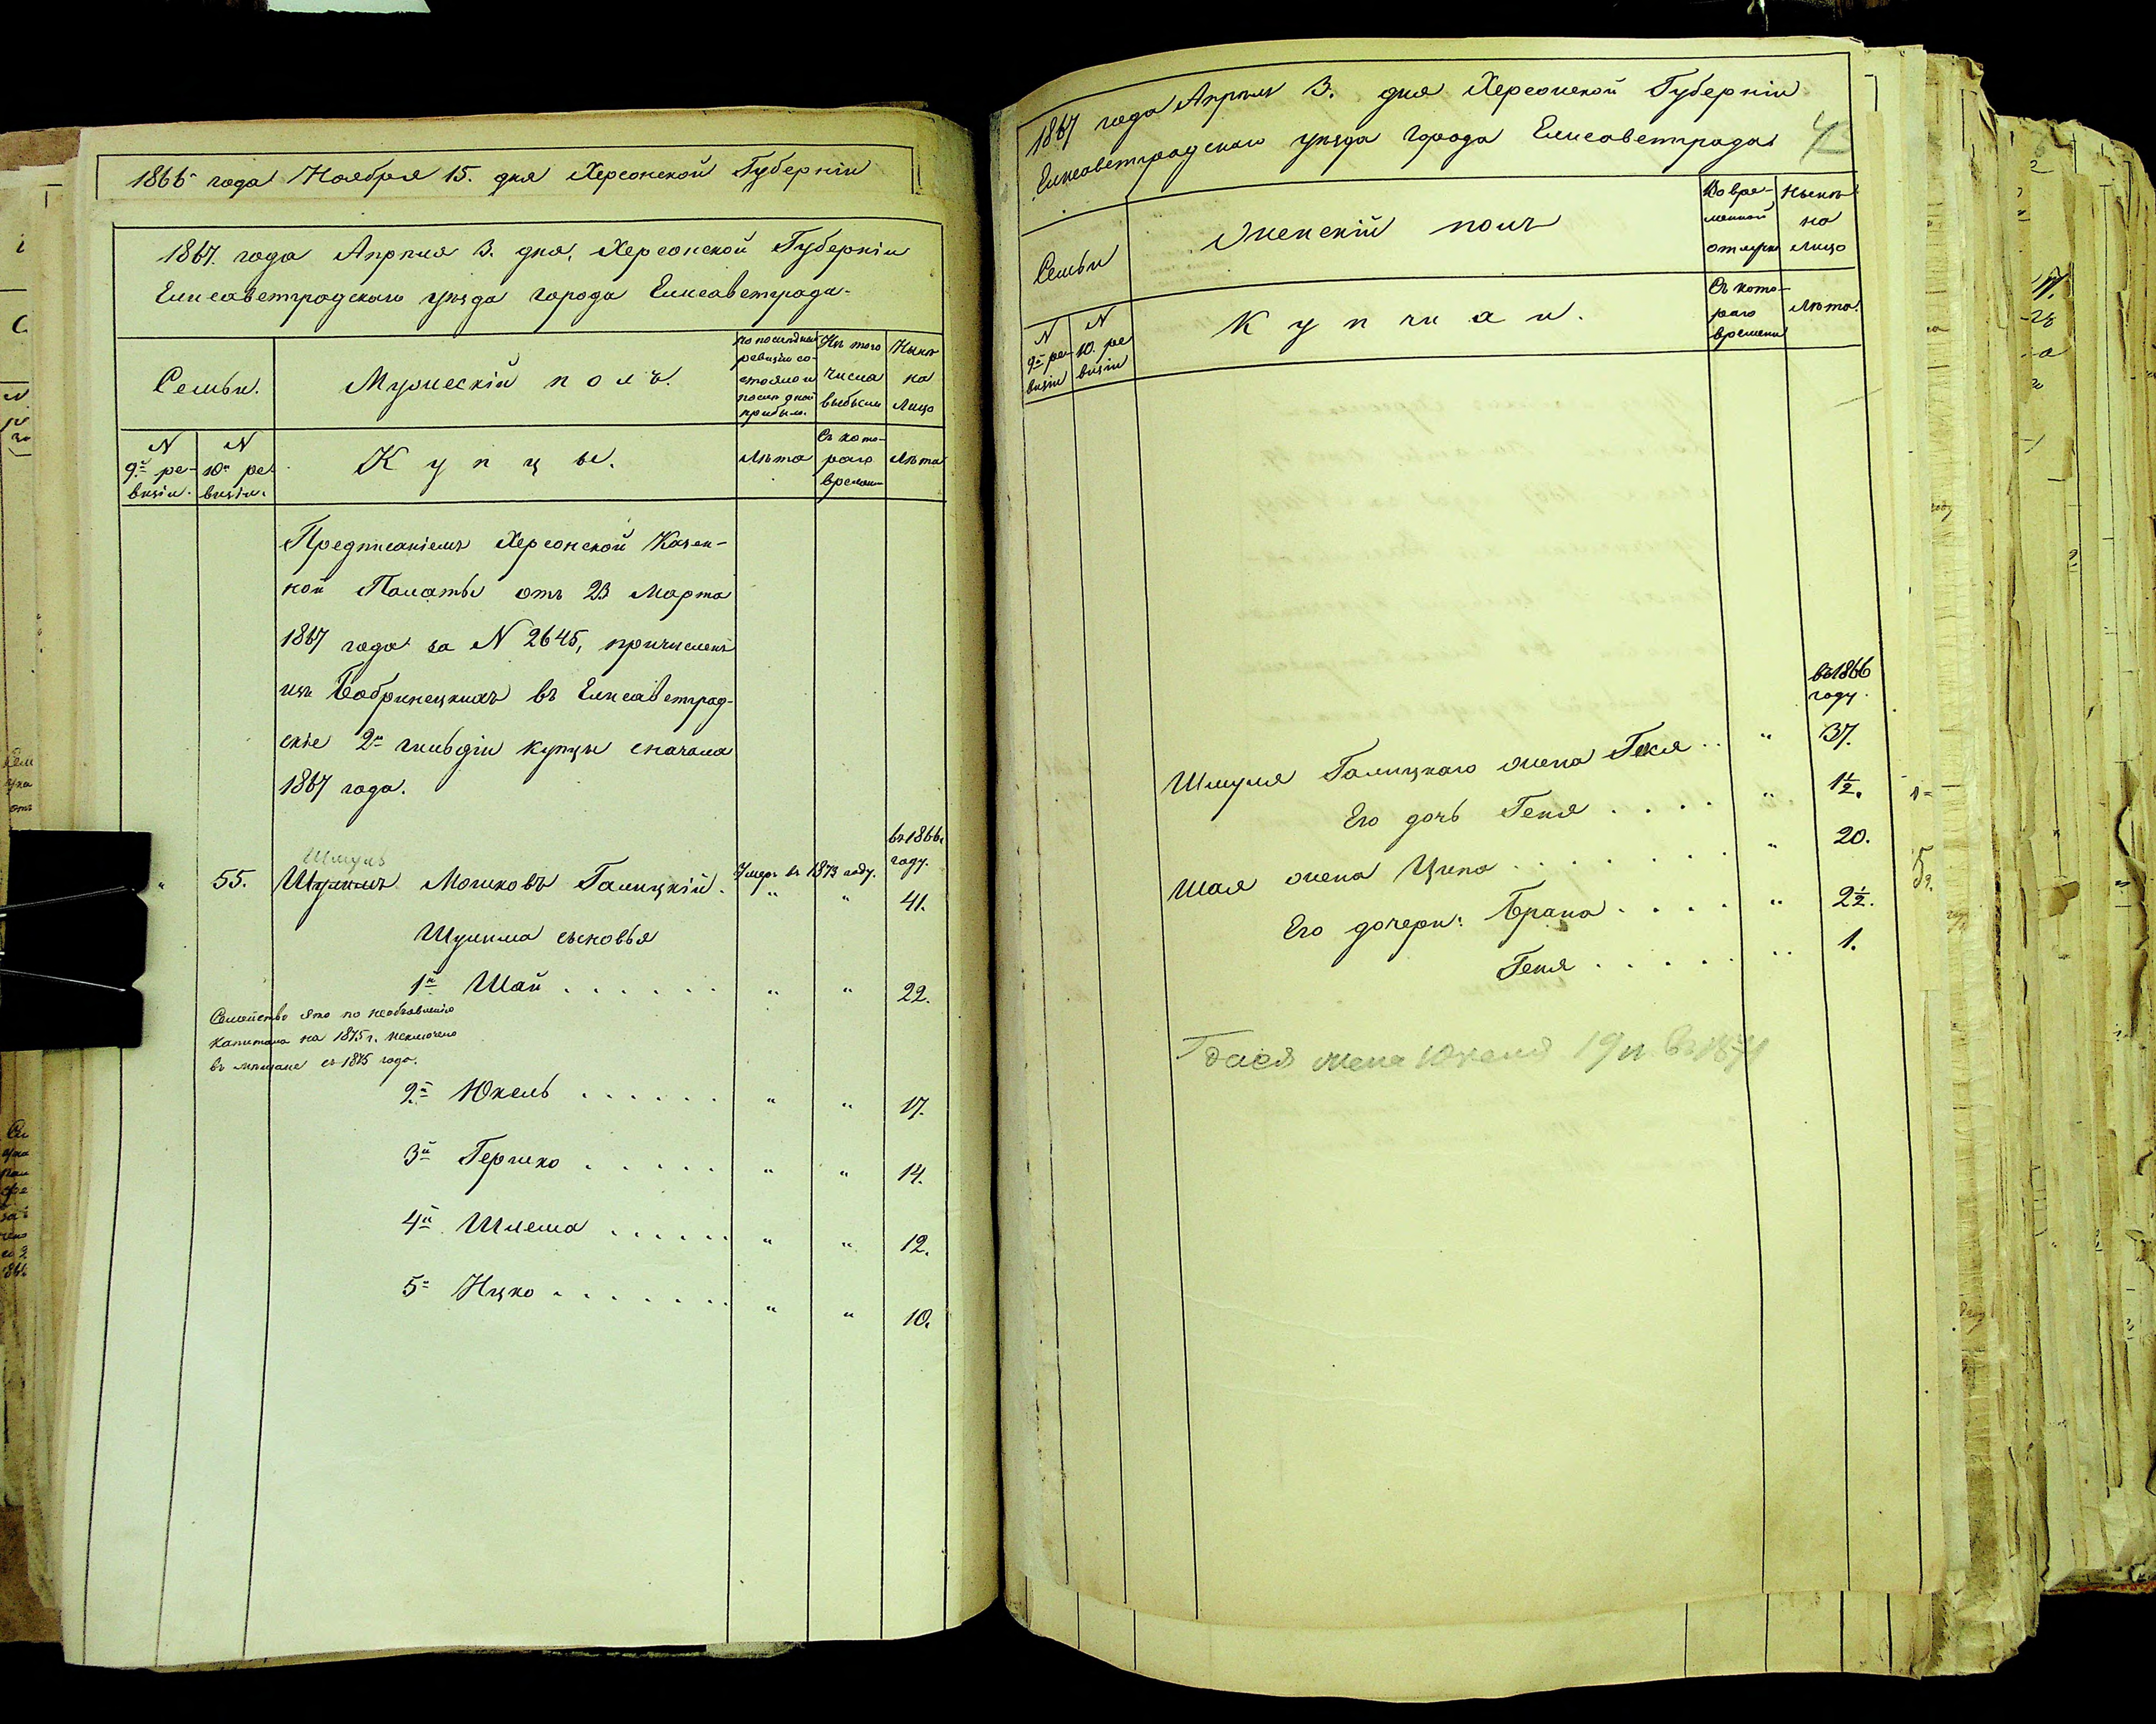 1866 года Ноября 15. дня Херсонской Губернiи
1867. года Апрѣля 3. дня, Херсонской Губернiи
Елисаветградскаго уѣзда города Елисаветграда.
Семьи.
Мужескiй полъ.
по последней ревизiи состояло и после оной прибыло.
Изъ того числа выбыли
Нынѣ на лицо
N 9й ревизiи.
N 10й ревизiи.
Купцы.
Лѣта
Съ котораго времени
Лѣта
Предписанiемъ Херсонской Казен-
ной Палаты отъ 23 Марта
1867 года за N 2645, причислены
изъ Бобринецкихъ въ Елисаветград-
скiе 2й гильдiи купцы сначала
1867 года.
въ 1866
году.
Шмуль
" 55. Шулимъ Мошковъ Галицкiй. Умеръ въ 1873 году.
" " 41.
Шулима сыновья
1й Шай . . . . . . " " 22.
Семейство это по необъявленiю
капитала на 1875 г. исключено
въ мѣщане съ 1875 года.
2й Юкель . . . . . . " " 17.
3й Гершко . . . . . " " 14.
4й Шлема . . . . . . " " 12.
5й Ицко . . . . . . . " " 10.
1867 года Апрѣля 3. дня Херсонской Губернiи
Елисаветградскаго уѣзда города Елисаветграда
Семьи
Женскiй полъ
Во временной отлучкѣ
Нынѣ на лицо
N 9й ревизiи
N 10. ревизiи
Купчихи.
Съ котораго времени
Лѣта.
въ 1866
году.
Шмуля Галицкаго жена Гекля . . " 37.
Его дочь Геня . . . . " 1½.
Шая жена Ципа . . . . . . . . " 20.
Его дочери: Брана . . . . " 2½.
Геня . . . . . " 1.
жена Юкеля 19 л. въ 1871